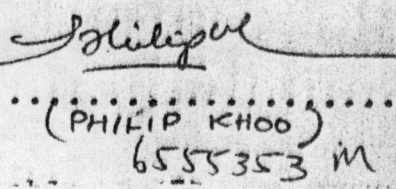 Philip
(PHILIP KHOO)
6555353 M